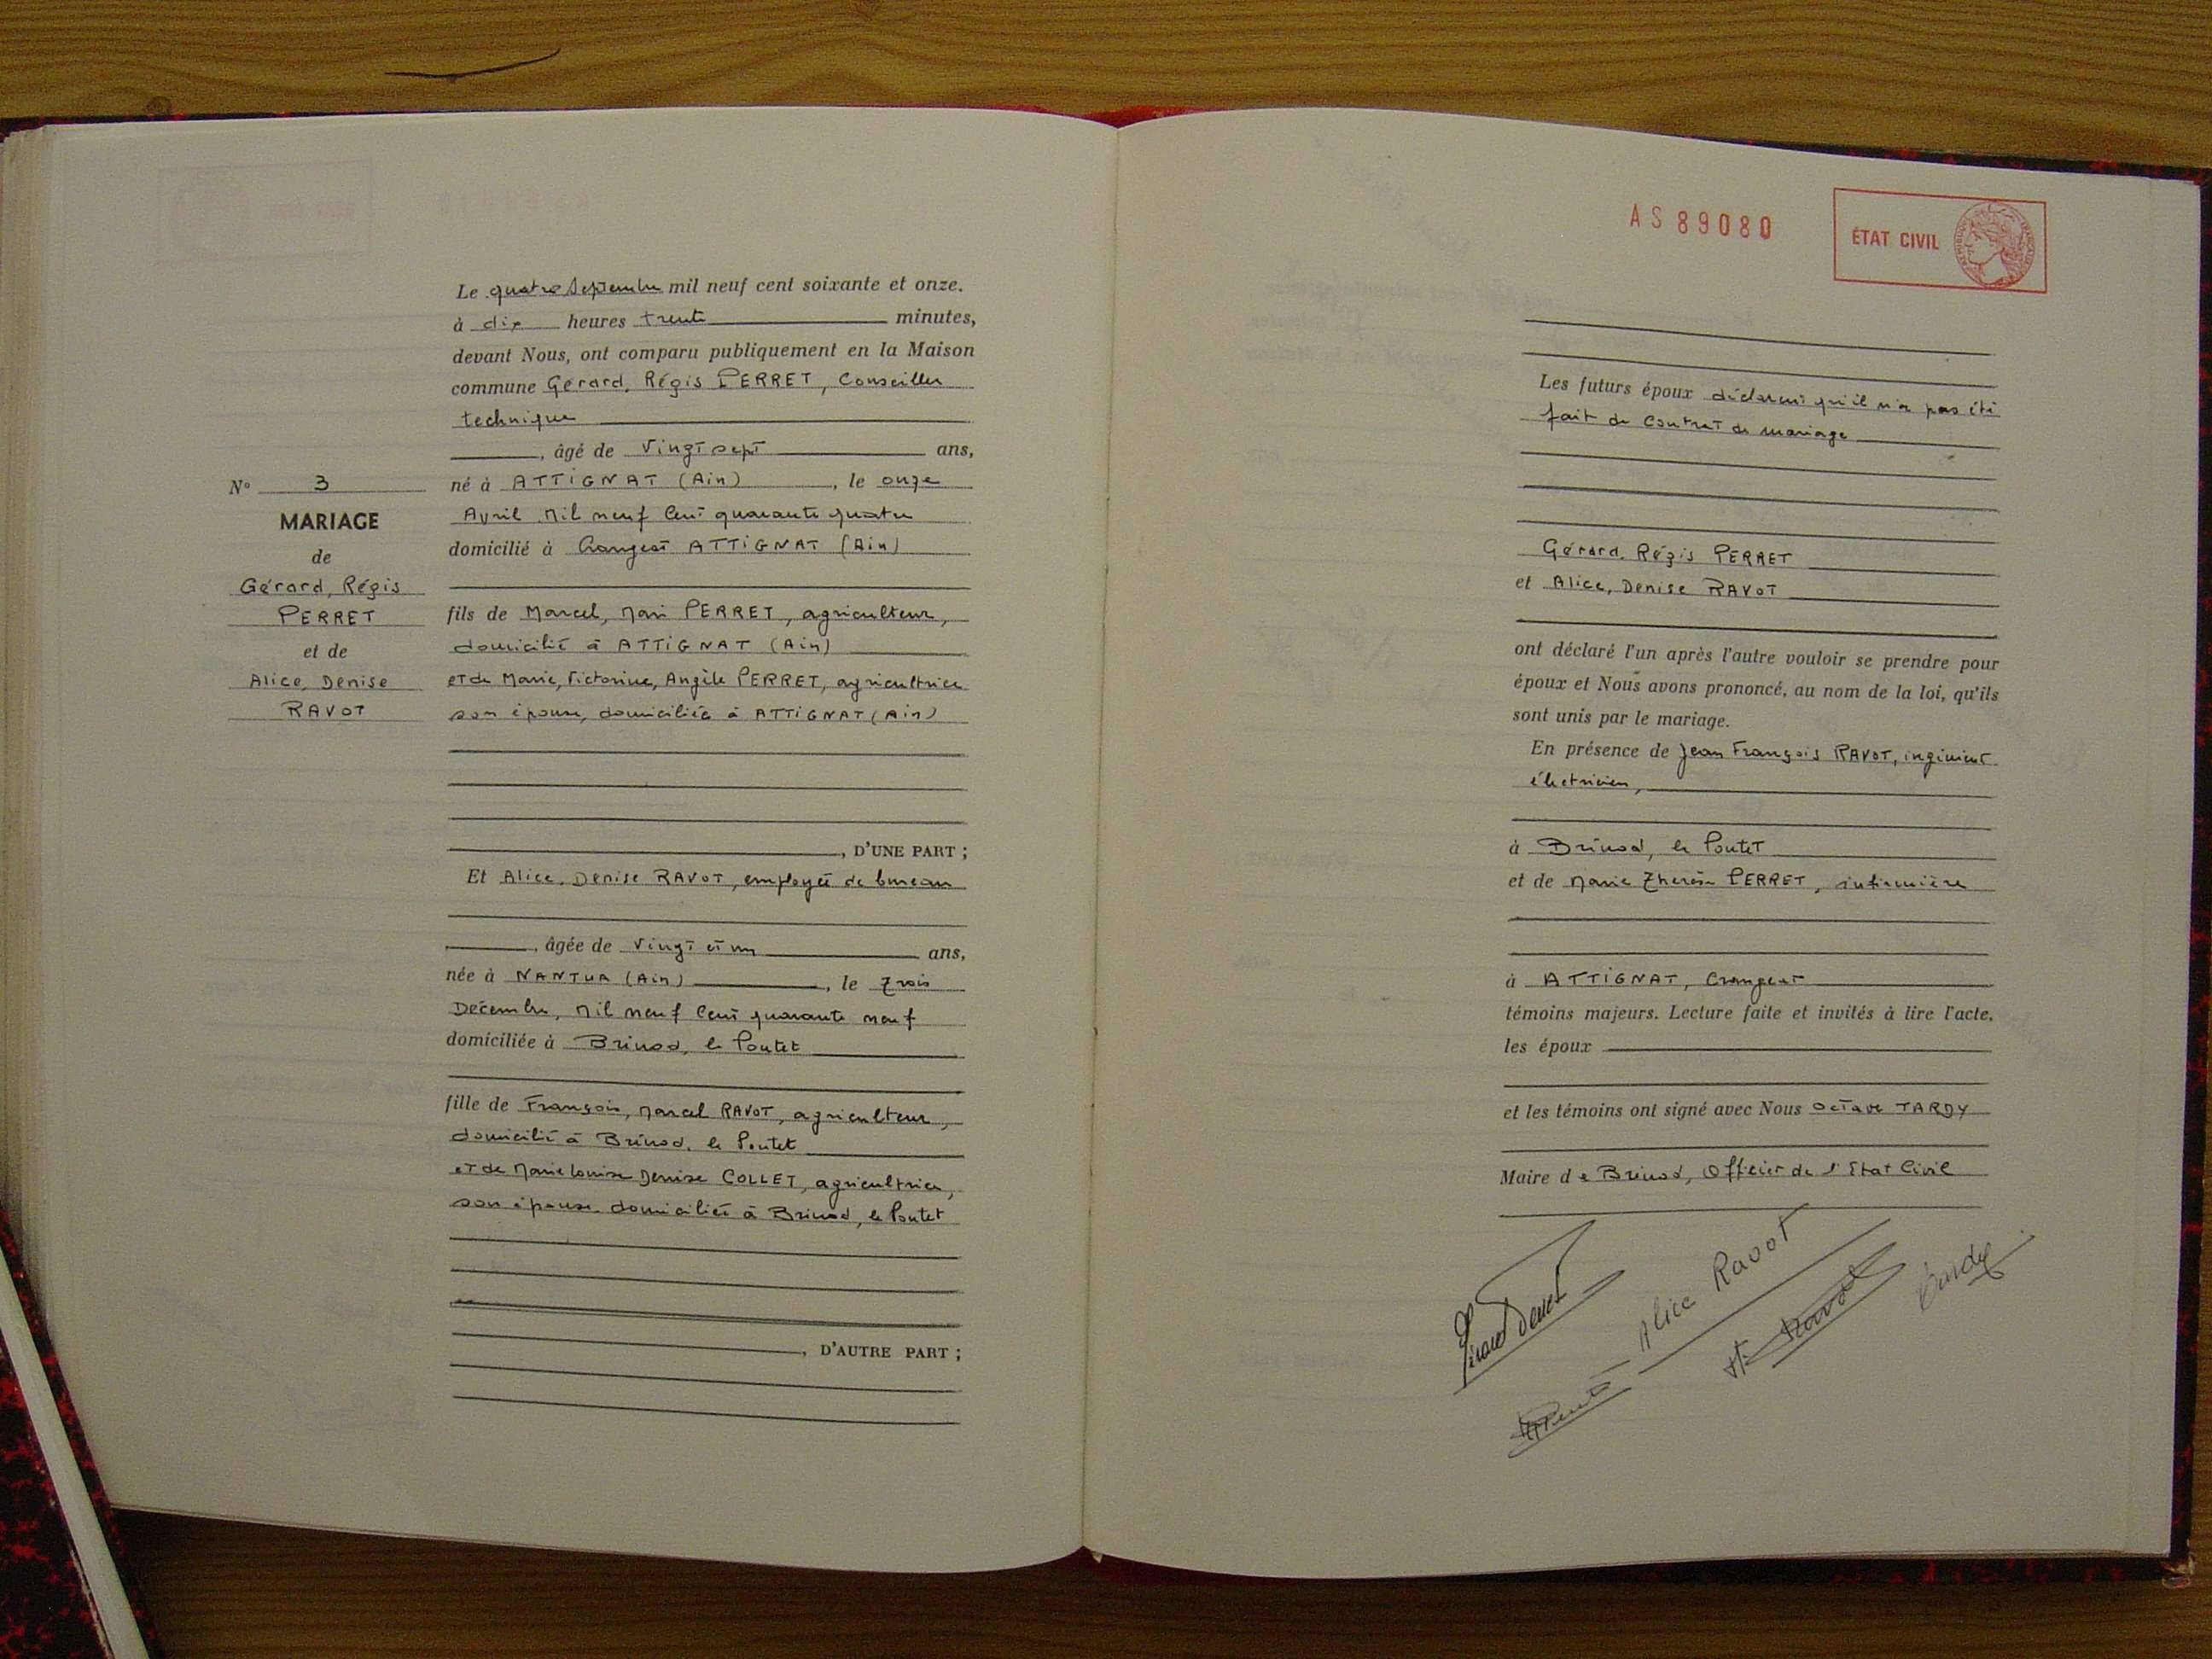 N° 3
MARIAGE
de
Gérard, Régis
PERRET
et de
Alice, Denise
RAVOT
Le quatre Septembre mil neuf cent soixante et onze.
à dix heures trente minutes,
devant Nous, ont comparu publiquement en la Maison
commune Gérard, Régis PERRET, Conseiller
technique
, âgé de Vingt sept ans,
né à ATTIGNAT (Ain), le onze
Avril Mil neuf Cent quarante quatre
domicilié à Crangeat ATTIGNAT (Ain)
fils de Marcel, Mari PERRET, agriculteur,
domicilié à ATTIGNAT (Ain)
et de Marie, Victorine, Angèle PERRET, agricultrice
son épouse, domiciliée à ATTIGNAT (Ain)
, D'UNE PART ;
Et Alice, Denise RAVOT, employée de bureau
, âgée de Vingt et un ans,
née à NANTUA (Ain), le Trois
Décembre, Mil neuf Cent quarante neuf
domiciliée à Brénod, le Poutet
fille de François, Marcel RAVOT, agriculteur,
domicilié à Brénod, le Poutet
et de Marie Louise Denise COLLET, agricultrice,
son épouse, domiciliée à Brénod, le Poutet
, D'AUTRE PART ;
AS 89080
ÉTAT CIVIL
Les futurs époux déclarent qu'il n'a pas été
fait de Contrat de mariage
Gérard, Régis PERRET
et Alice, Denise RAVOT
ont déclaré l'un après l'autre vouloir se prendre pour
époux et Nous avons prononcé, au nom de la loi, qu'ils
sont unis par le mariage.
En présence de Jean François RAVOT, ingénieur
électricien,
à Brénod, le Poutet
et de Marie Thérèse PERRET, infirmière
à ATTIGNAT, Crangeat
témoins majeurs. Lecture faite et invités à lire l'acte,
les époux
et les témoins ont signé avec Nous Octave TARDY
Maire de Brénod, Officier de l'Etat Civil
Alice Ravot
Tardy